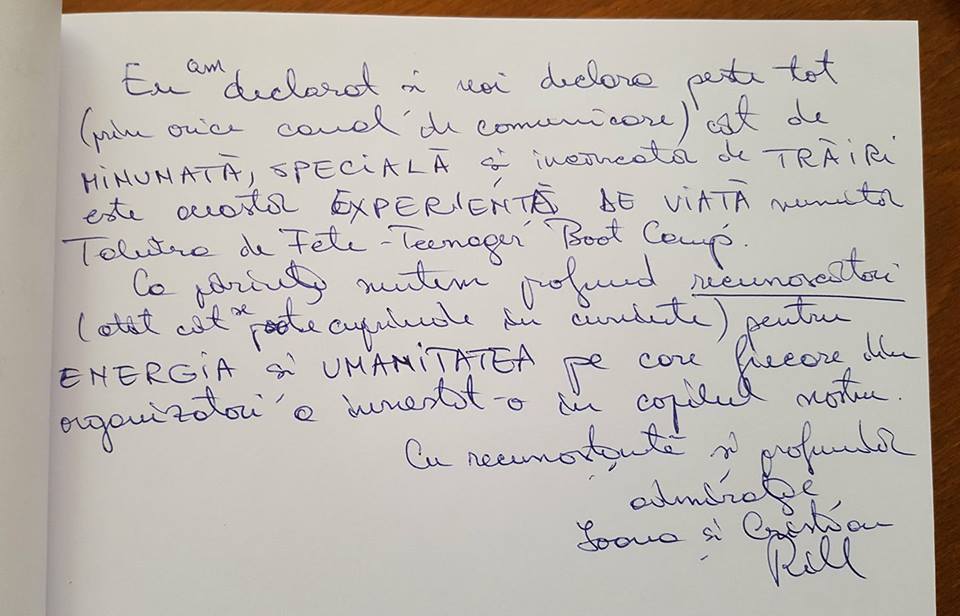 Eu am declarat și voi declara peste tot
(prin orice canal de comunicare) cât de
MINUNATĂ, SPECIALĂ și încărcată de TRĂIRI
este această EXPERIENȚĂ DE VIAȚĂ numită
Tabăra de Fete - Teenager Boot Camp.
Ca părinți suntem profund recunoscători
(atât cât se poate cuprinde în cuvinte) pentru
ENERGIA și UMANITATEA pe care fiecare din
organizatori a investit-o în copilul nostru.
Cu recunoștință și profundă
admirație,
Ioana și Cristian